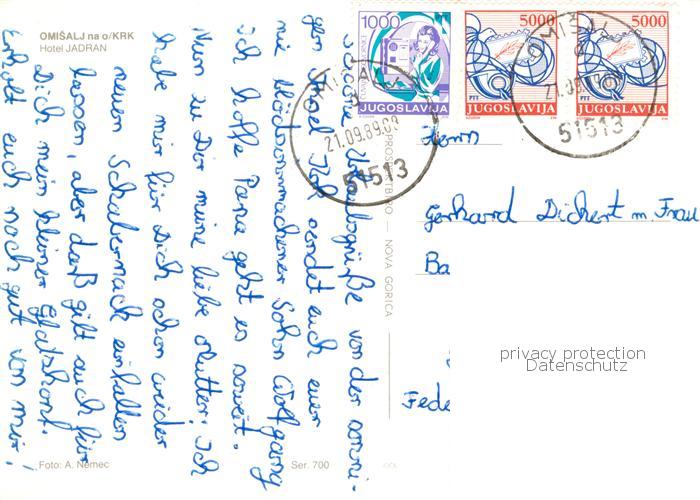 OMIŠALJ na o/KRK
Hotel JADRAN
1000
JUGOSLAVIJA
5000
PTT
JUGOSLAVIJA
5000
PTT
JUGOSLAVIJA
21.09.89.08
51513
OMIŠALJ
21.09.89
51513
Schöne Urlaubsgrüße von der sonni-
gen Insel Krk sendet euch euer
nie blödsinnmachener Sohn Wolfgang
ich hoffe Papa geht es soweit.
Nun zu Dir meine liebe Mutter! Ich
habe mir für Dich schon wieder
neuen Schabernack einfallen
lassen, aber daß gilt auch für
Dich mein kleiner
Erholt euch noch gut von mir!
NOVA GORICA
Herrn
Gerhard Dichert m. Frau
Ba
Fede
privacy protection
Datenschutz
Foto: A. Nemec
Ser. 700